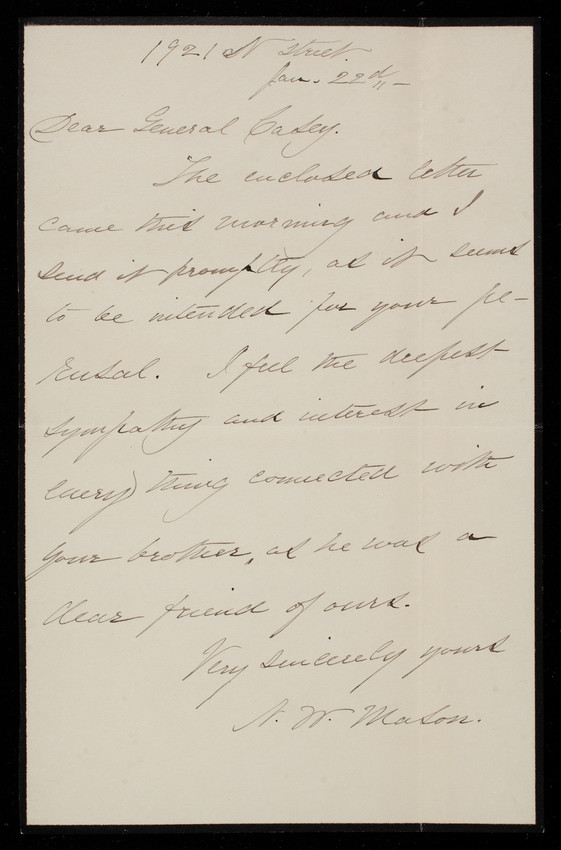 1921 N Street
Jan. 22d
Dear General Casey.
The enclosed letter
came this morning and I
send it promptly, as it seems
to be intended for your pe-
rusal. I feel the deepest
sympathy and interest in
every thing connected with
your brother, as he was a
dear friend of ours.
Very sincerely yours
N. W. Mason.